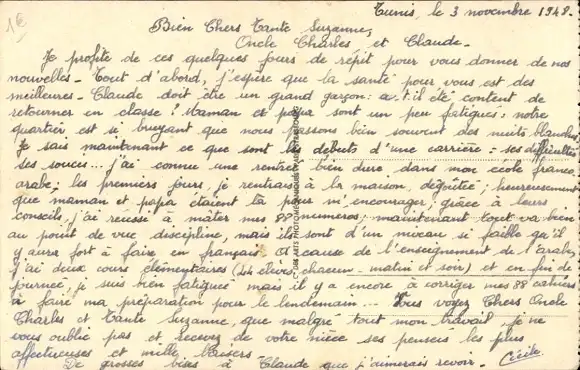 1€
Tunis, le 3 novembre 1948.
Bien Chers Tante Suzanne,
Oncle Charles et Claude.
Je profite de ces quelques jours de répit pour vous donner de nos
nouvelles. Tout d'abord, j'espère que la santé pour vous est des
meilleures. Claude doit être un grand garçon: a-t-il été content de
retourner en classe? Maman et papa sont un peu fatigués: notre
quartier est si bruyant que nous passons bien souvent des nuits blanches
Je sais maintenant ce que sont les débuts d'une carrière: ses difficultés
ses soucis... j'ai connu une rentrée bien dure dans mon école franco
arabe; les premiers jours, je rentrais à la maison, dégoûtée; heureusement
que maman et papa étaient là pour m'encourager; grâce à leurs
conseils, j'ai réussi à mâter mes 88 numéros; maintenant tout va bien
au point de vue discipline, mais ils sont d'un niveau si faible qu'il
y aura fort à faire en français à cause de l'enseignement de l'arabe.
J'ai deux cours élémentaires (44 élèves chacun - matin et soir) et en fin de
journée, je suis bien fatiguée mais il y a encore à corriger mes 88 cahiers
à faire ma préparation pour le lendemain... Vous voyez Chers Oncle
Charles et Tante Suzanne, que malgré tout mon travail je ne
vous oublie pas et recevez de votre nièce ses pensées les plus
affectueuses et mille baisers.
De grosses bises à Claude que j'aimerais revoir. Cécile